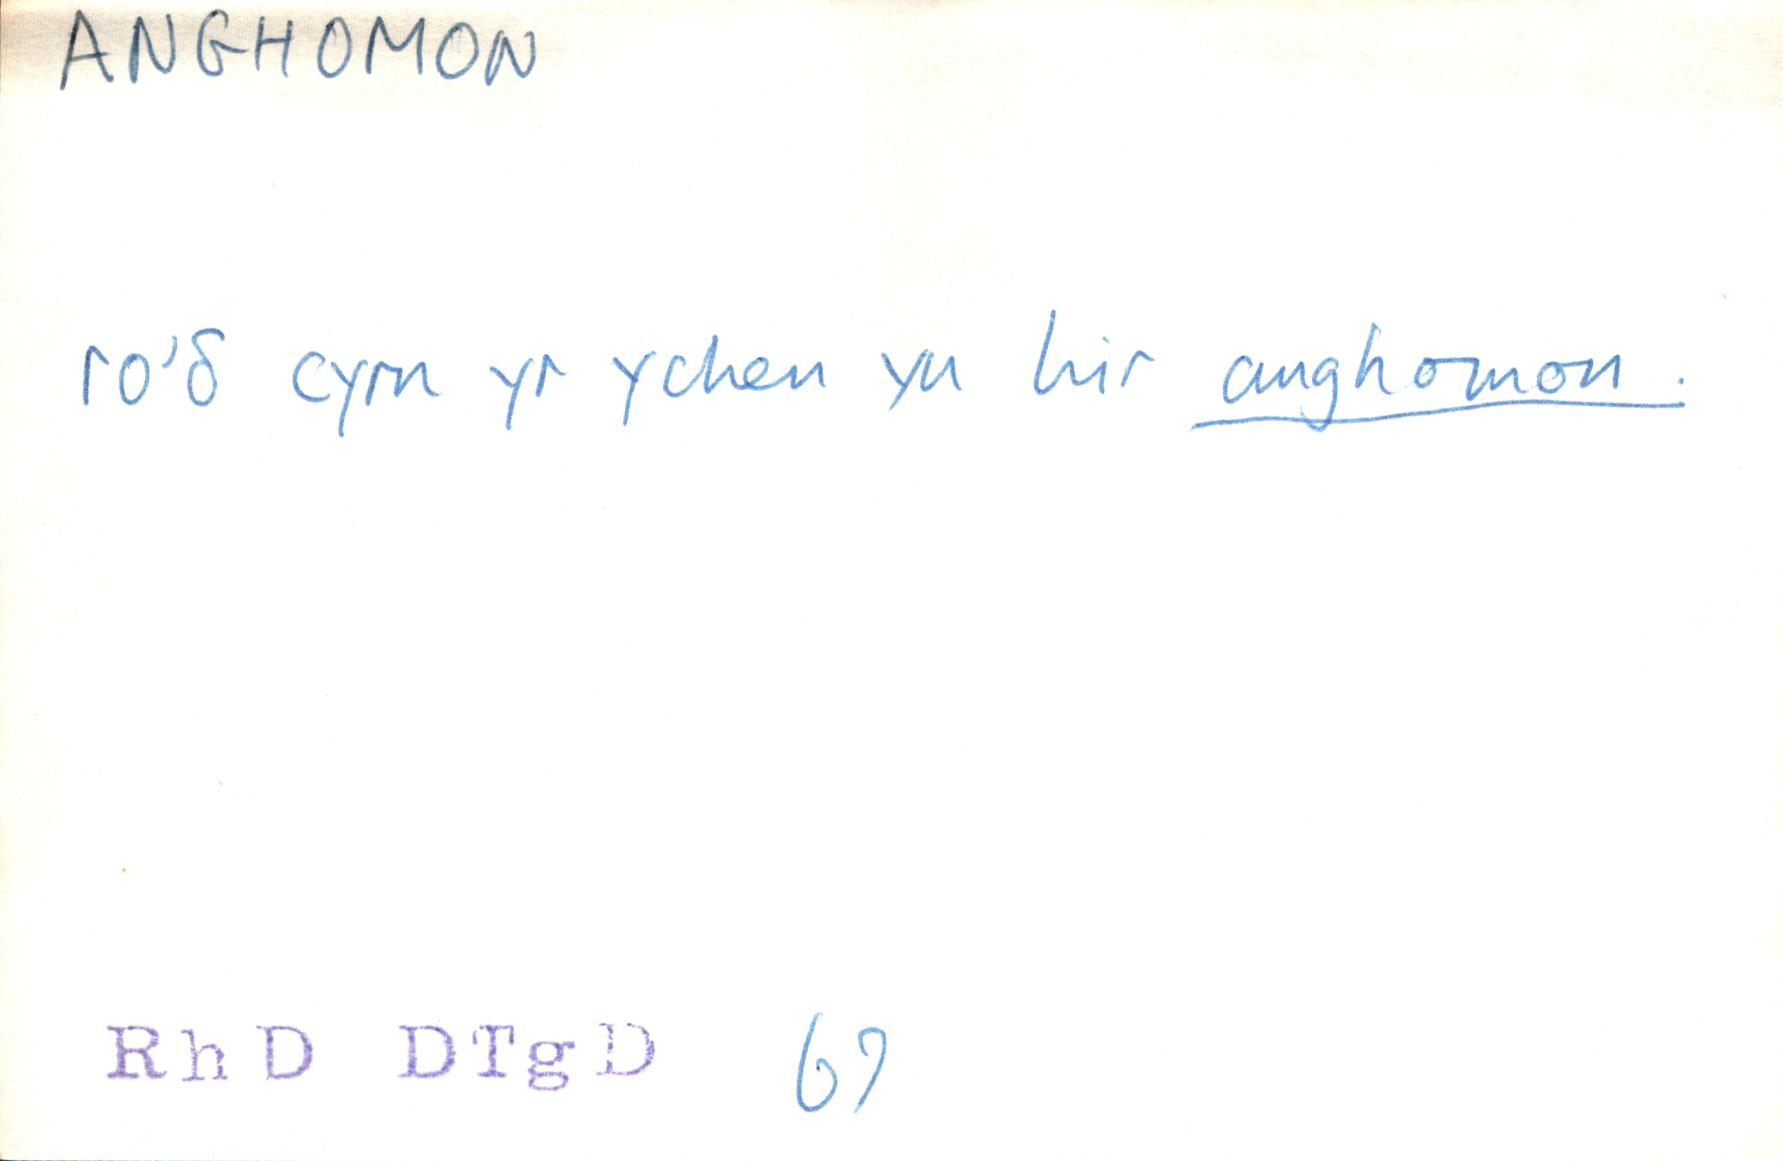 ANGHOMON
ro'δ cyrn yr ychen yn hir anghomon.
RhD DTgD 69